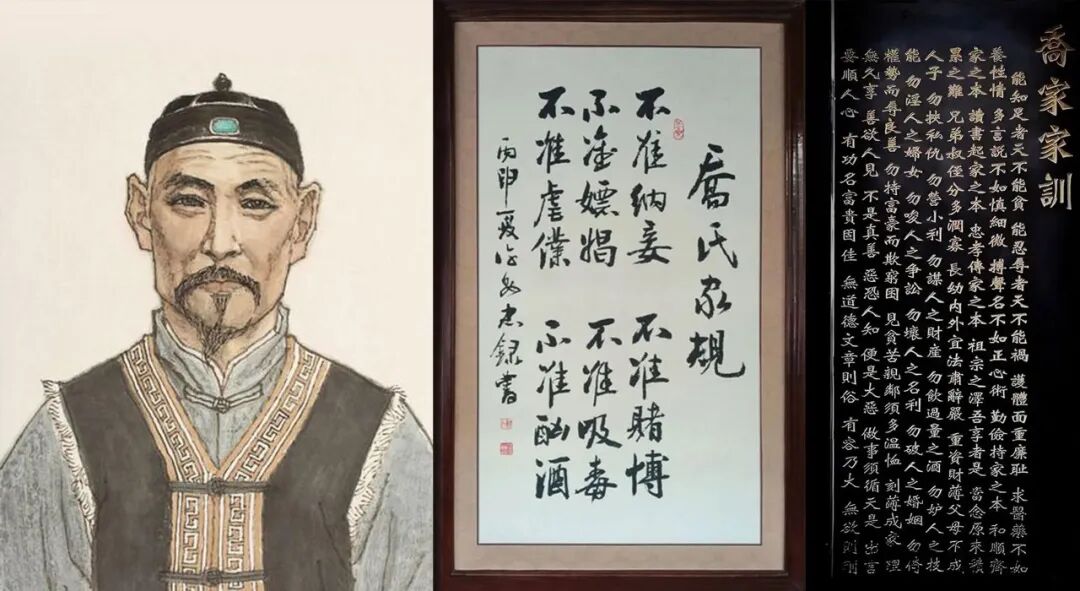 喬氏家規
不准納妾 不准賭博
不准嫖娼 不准吸毒
不准虐僕 不准酗酒
丙申夏 忠錄書
喬家家訓
能知足者天不能貧 能忍辱者天不能禍 護體面而重廉耻 求醫藥不如
養性情 多言説不如慎細微 搏聲名不如正心術 勤儉持家之本 和順齊
家之本 讀書起家之本 忠孝傳家之本 祖宗之澤吾享者是 當念原來積
累之難 兄弟叔侄分多潤寡 長幼内外宣法肅辭嚴 重資財薄父母不成
人子 勿挾私仇 勿營小利 勿謀人之財産 勿飲過量之酒 勿妒人之技
能 勿淫人之婦女 勿唆人之争訟 勿壞人之名利 勿破人之婚姻 勿倚
權勢而辱良善 勿恃富豪而欺窮困 見貧苦親鄰須多温恤 刻薄成家 理
無久享 善欲人見 不是真善 惡恐人知 便是大惡 做事須循天是 出言
要順人心 有功名富貴固佳 無道德文章則俗 有容乃大 無欲則剛